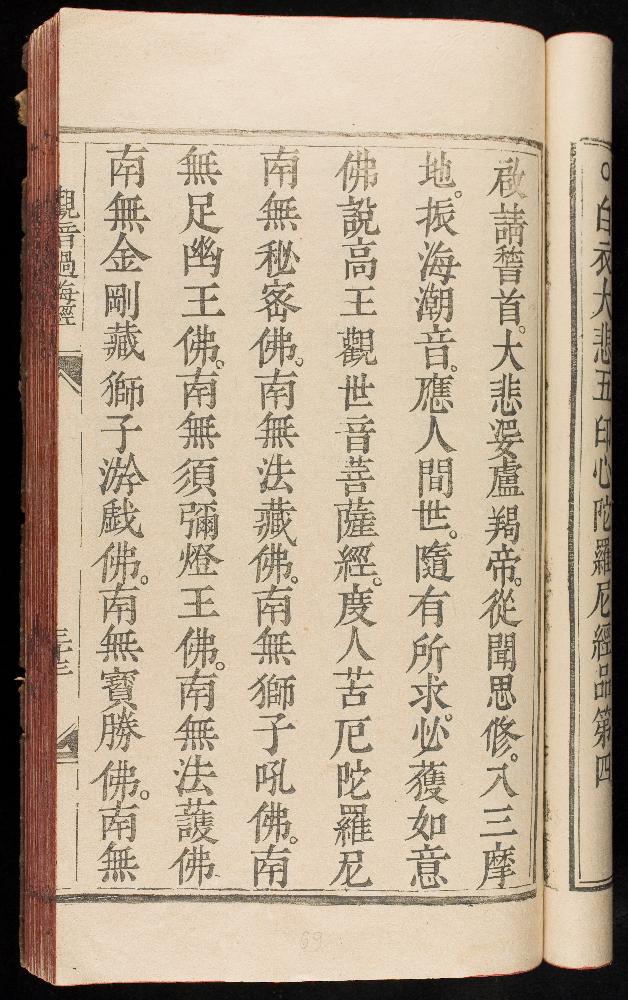 。白衣大悲五印心陀羅尼經品第四
啟請稽首。大悲娑盧羯帝。從聞思修。入三摩
地。振海潮音。應人間世。隨有所求。必獲如意
佛說高王觀世音菩薩經。度人苦厄陀羅尼
南無秘密佛。南無法藏佛。南無獅子吼佛。南
無足幽王佛。南無須彌燈王佛。南無法護佛
南無金剛藏獅子游戲佛。南無寶勝佛。南無
觀音過海經
三十三
69